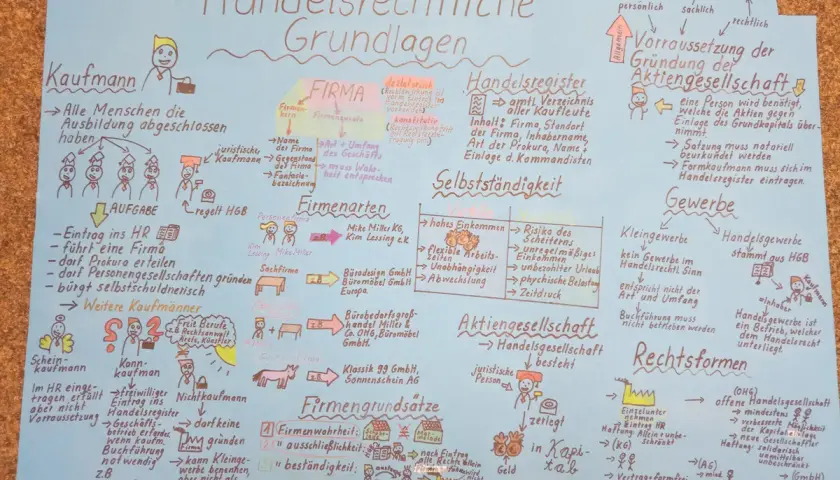 Handelsrechtliche
Grundlagen
Kaufmann
→ Alle Menschen die
Ausbildung abgeschlossen
haben
juristische
Kaufmann
→ regelt HGB
AUFGABE
- Eintrag ins HR
- führt eine Firma
- darf Prokura erteilen
- darf Personengesellschaften gründen
- bürgt selbstschuldnerisch
→ Weitere Kaufmänner
Schein-
kaufmann
Im HR einge-
tragen erfüllt
aber nicht
Vorraussetzung
Kann-
kaufman
→ freiwilliger
Eintrag ins
Handelsregister
→ Geschäfts-
betrieb erfordert
wenn kaufm.
Buchführung
notwendig
z.B
Freie Berufe
z.B Rechtsanwalt
Ärzte, Künstler
Nichtkaufmann
→ darf keine
Firma gründen
→ kann Kleinge-
werbe benennen,
aber nicht als
FIRMA
Firmen-
kern
→ Name
der Firma
→ Gegenstand
der Firma
→ Fantasie-
bezeichnung
→ Art + Umfang
des Geschäfts
→ muss Wahr-
heit entsprechen
deklaratorisch
konstitutiv
Firmenarten
Personenfirma
Kim
Lessing
Mike Miller
Mike Miller KG,
Kim Lessing e.K
Sachfirma
z.B
Bürodesign GmbH
Büromöbel GmbH
Europa
z.B.
Bürobedarfsgroß-
handel Miller &
Co. OHG, Büromöbel
GmbH.
z.B
Klassik 99 GmbH,
Sonnenschein AG
Firmengrundsätze
1 Firmenwahrheit:
2 " ausschließlichkeit:
3 " beständigkeit:
→ nach Eintrag
alle Rechte allein
Handelsregister
→ amtl. Verzeichnis
aller Kaufleute
Inhalt: Firma, Standort
der Firma, Inhabername,
Art der Prokura, Name +
Einlage d. Kommandisten
Selbstständigkeit
→ hohes Einkommen
→ flexible Arbeits-
zeiten
→ Unabhängigkeit
→ Abwechslung
→ Risiko des
Scheiterns
→ unregelmäßiges
Einkommen
→ unbezahlter Urlaub
→ physchische Belastung
→ Zeitdruck
Aktiengesellschaft
→ Handelsgesellschaft
besteht
juristische
Person
zerlegt
Geld
in Kapi-
tab
persönlich
sachlich
rechtlich
Allgemein
Vorraussetzung der
Gründung der
Aktiengesellschaft
eine Person wird benötigt,
welche die Aktien gegen
Einlage des Grundkapitals über-
nimmt.
→ Satzung muss notariell
beurkundet werden
→ Formkaufmann muss sich im
Handelsregister eintragen.
Gewerbe
Kleingewerbe
kein Gewerbe im
Handelsrechtl. Sinn
entspricht nicht der
Art und Umfang
Buchführung muss
nicht betrieben werden
Handelsgewerbe
stammt aus HGB
inhaber
Kaufmann
Handelsgewerbe ist
ein Betrieb, welcher
dem Handelsrecht
unterliegt.
Rechtsformen
Einzelunter
nehmen
→ Eintrag HR
Haftung: Allein unbe-
schränkt
→ (KG)
→ Vertragsformfrei
(OHG)
→ offene Handelsgesellschaft
→ mindestens
→ verbesserte Möglichkeit
der Kapitalanlage
→ neue Gesellschafter
Haftung: solidarisch
unmittelbar
unbeschränkt
→ (AG)
→ mind.
→ (GmbH)